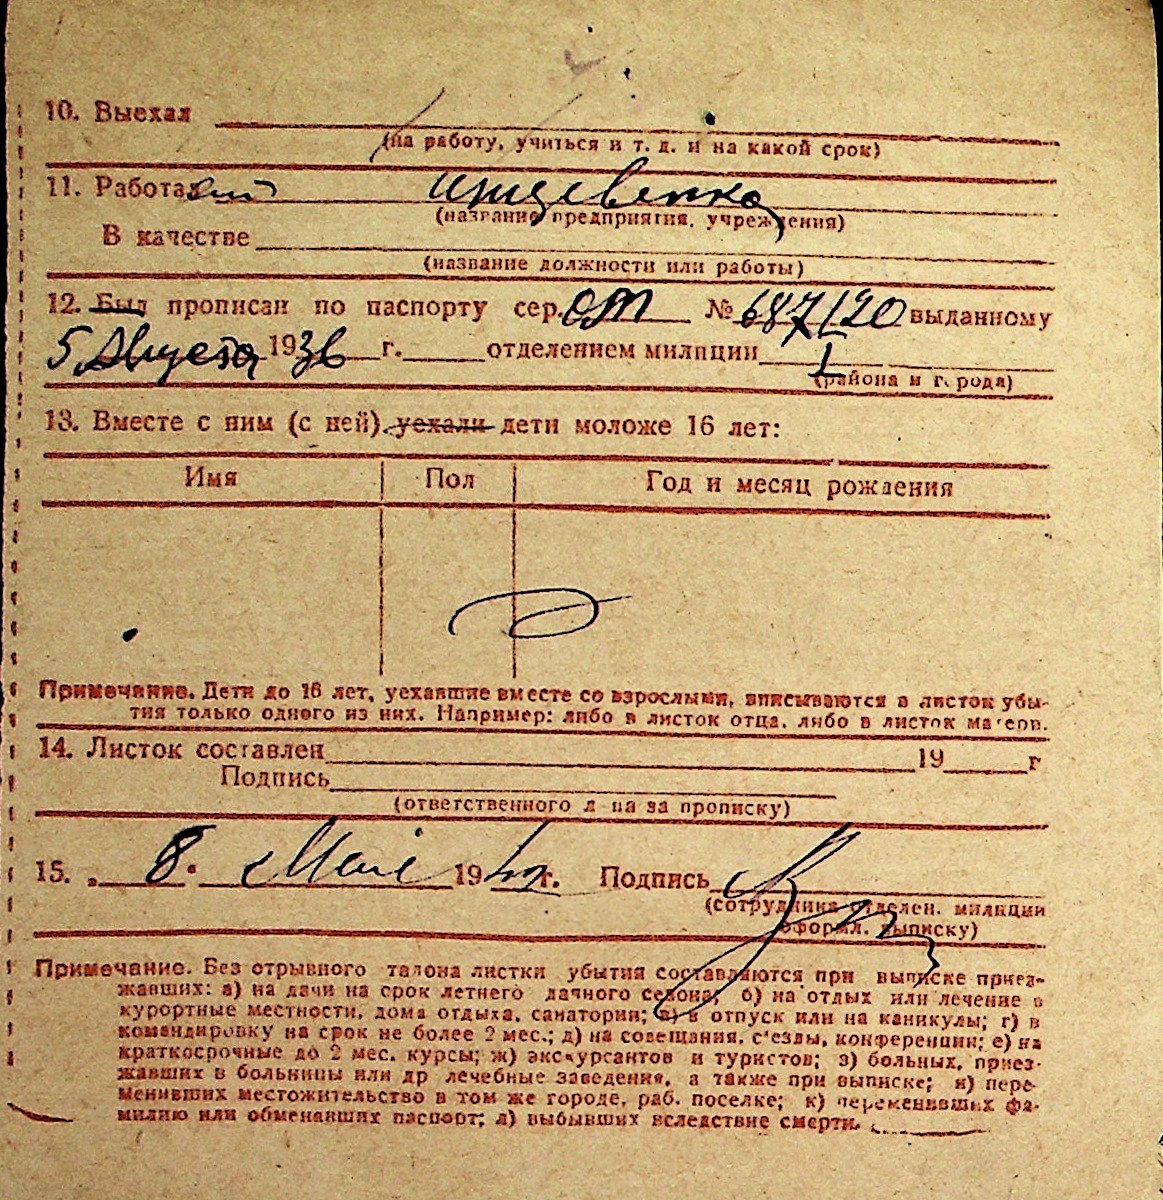 10. Выехал
(на работу, учиться и т. д. и на какой срок)
11. Работа
(название предприятия, учреждения)
В качестве
(название должности или работы)
12. Был прописан по паспорту сер. № 687120 выданному
5 Августа 1936 г. отделением милиции 1
(района и города)
13. Вместе с ним (с ней) уехали дети моложе 16 лет:
Имя Пол Год и месяц рождения
Примечание. Дети до 16 лет, уехавшие вместе со взрослыми, вписываются в листок убы-
тия только одного из них. Например: либо в листок отца, либо в листок матери.
14. Листок составлен 19 г
Подпись
(ответственного лица за прописку)
15. „ 8 " Мая 19 г. Подпись
(сотрудника отделен. милиции
оформл. выписку)
Примечание. Без отрывного талона листки убытия составляются при выписке приез-
жавших: а) на дачи на срок летнего дачного сезона; б) на отдых или лечение в
курортные местности, дома отдыха, санатории; в) в отпуск или на каникулы; г) в
командировку на срок не более 2 мес.; д) на совещания, с'езды, конференции; е) на
краткосрочные до 2 мес. курсы; ж) экскурсантов и туристов; з) больных, приез-
жавших в больницы или др лечебные заведения, а также при выписке; и) пере-
менивших местожительство в том же городе, раб. поселке; к) переменивших фа-
милию или обменявших паспорт; л) выбывших вследствие смерти.